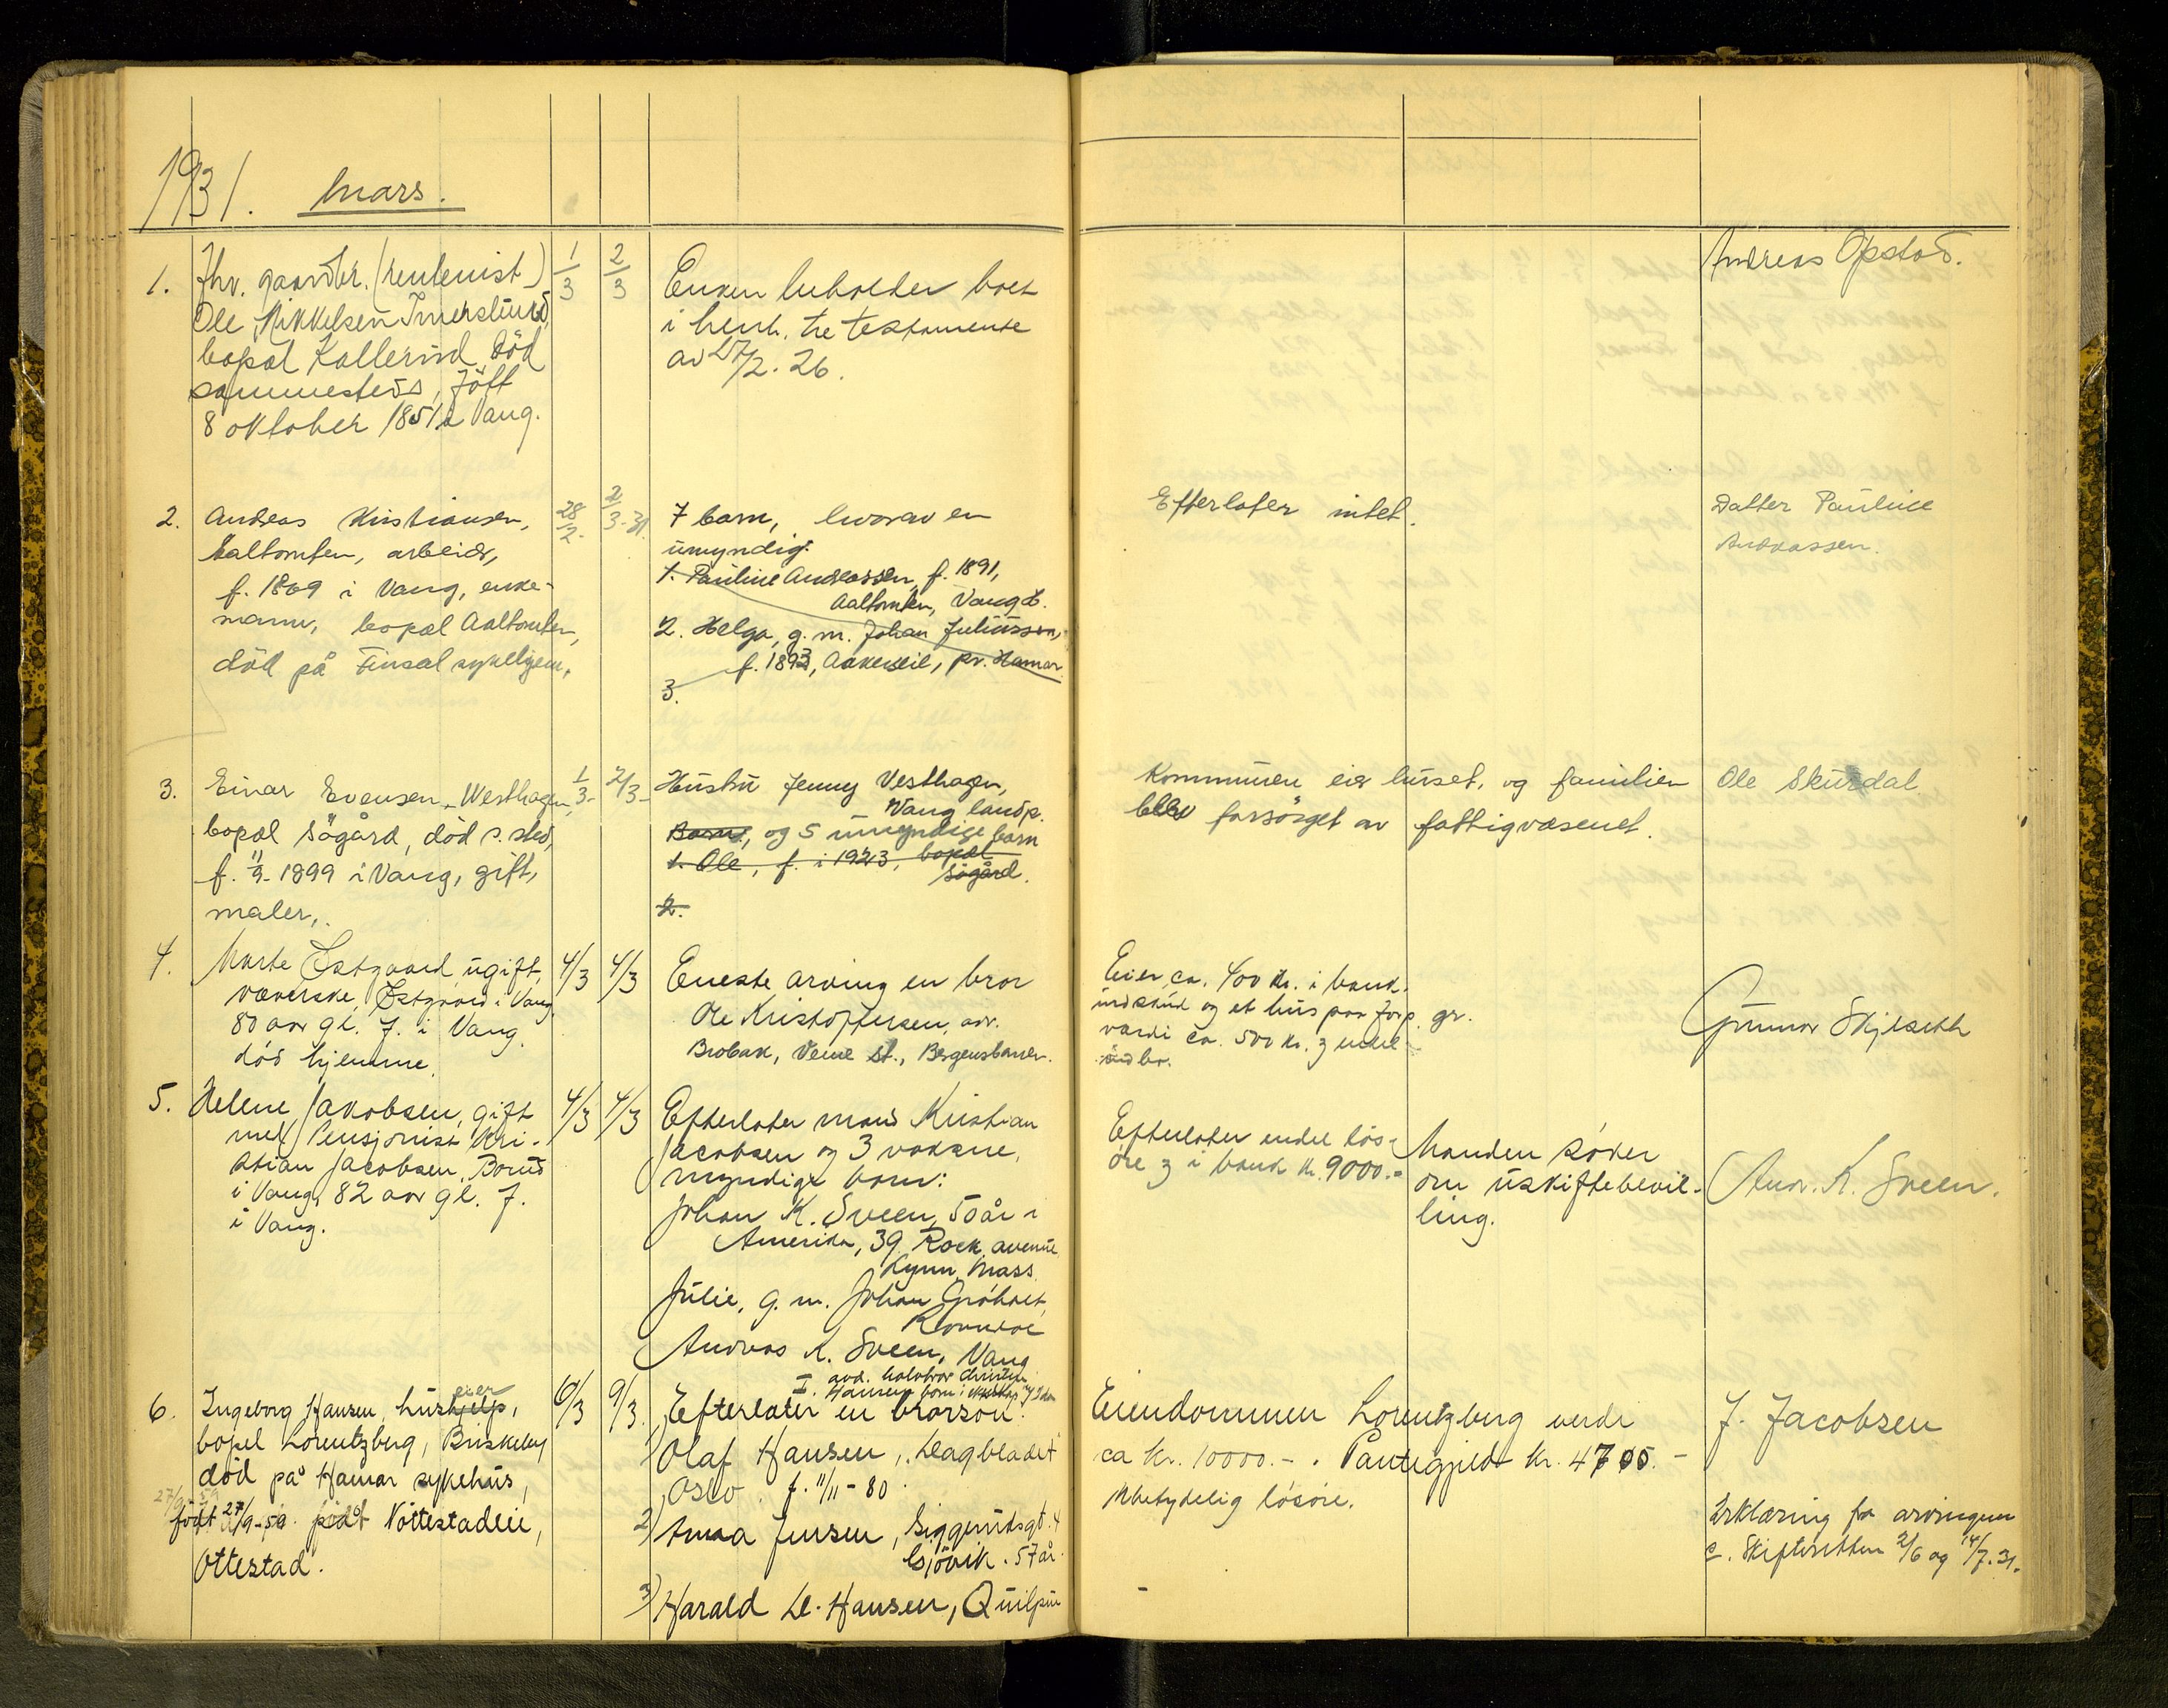 1931. Mars.
1. Fhv. gaardbr. (rentenist)
Ole Mikkelsen Imerslund,
bopæl Kallerud, död
sammesteds, födt
8 oktober 1851 i Vang.
1/3 2/3
Enken beholder boet
i henh. til testamente
av 27/2. 26.
Andreas Opstad.
2. Andreas Kristiansen,
Aaltomten, arbeider,
f. 1869 i Vang, enke-
mann, bopæl Aaltomten,
död på Finsal sykehjem.
28/2. 2/3-31.
7 barn, hvorav en
umyndig.
1. Pauline Andreassen, f. 1891,
Aaltomten, Vang H.
2. Helga, g. m. Johan Juliussen,
f. 1893, Aakersvik, pr. Hamar
3.
Efterlater intet.
Datter Pauline
Andreassen.
3. Einar Evensen Westhagen,
bopæl Sögård, död s. sted,
f. 11/9-1899 i Vang, gift,
maler,
1/3- 2/3-
Hustru Jenny Vesthagen,
Vang landp.
Barn, og 5 umyndige barn
1. Ole, f. i 1923, bopæl
Sögård.
2.
Kommunen eier huset, og familien
blev forsörget av fattigvæsenet.
Ole Skurdal
4. Marte Østgaard ugift,
væverske, Østgaard i Vang
80 aar gl. f. i Vang.
död hjemme.
4/3 4/3
Eneste arving en bror
Ole Kristoffersen, adr.
Brobak, Veme St., Bergensbanen.
Eier ca. 400 kr. i bank-
indskud og et hus paa forp. gr.
værdi ca. 500 kr. & endel
indbo.
Gunnar Skjelseth
5. Helene Jakobsen, gift
med Pensjonist Kri-
stian Jacobsen, Borud
i Vang, 82 aar gl. f.
i Vang.
4/3 4/3
Efterlater mand Kristian
Jacobsen og 3 voksne,
myndige barn:
Johan K. Sveen, 50 år i
Amerika, 39 Rock avenue
Lynn, Mass.
Julie, g. m. Johan Gröholt,
Romedal
Andreas K. Sveen, Vang
Efterlater endel lös-
öre & i bank kr. 9000.-
Manden söker
om uskiftebevil-
ling.
Andr. K. Sveen.
6. Ingeborg Hansen, hushjelp,
eier
bopel Lorentzberg, Briskeby
död på Hamar sykehus,
27/9 59
födt 27/9-59. födt Nöttestadeie,
Ottestad.
6/3 9/3.
I. avd. halvbror Christian
Hansens barn i
Efterlater en brorsön:
1) Olaf Hansen, Dagbladet
Oslo. f. 11/11-80.
2) Anna Jensen, Siggerudsgt. 4
Gjövik. 57 år.
3) Harald L. Hansen, Quilpue
Eiendommen Lorentzberg verdi
ca kr. 10000.-. Pantegjeld kr. 4700.-
Ubetydelig lösöre.
J. Jacobsen
Erklæring fra arvingene
e. Skifteretten 2/6 og 14/7. 31.